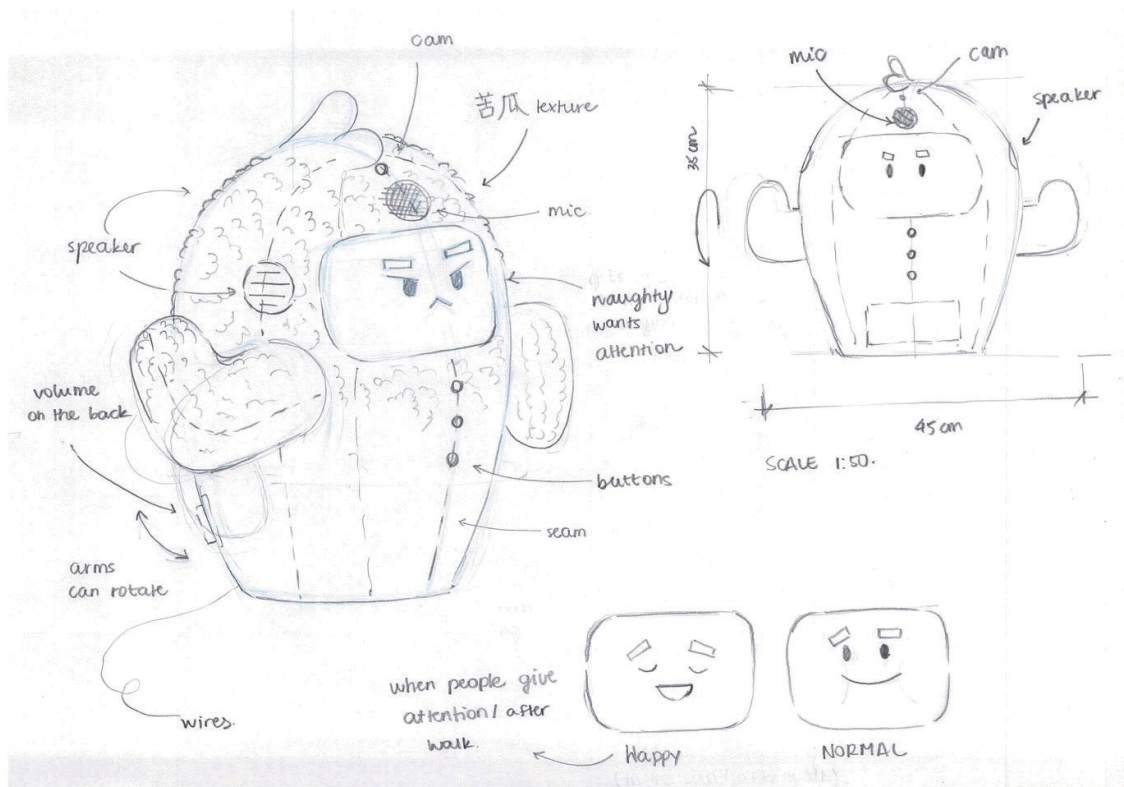 cam
苦瓜 texture
mic
speaker
naughty
wants
attention
volume
on the back
buttons
seam
arms
can rotate
wires.
mic
cam
speaker
35 cm
45 cm
SCALE 1:50.
when people give
attention/ after
walk.
Happy
NORMAL